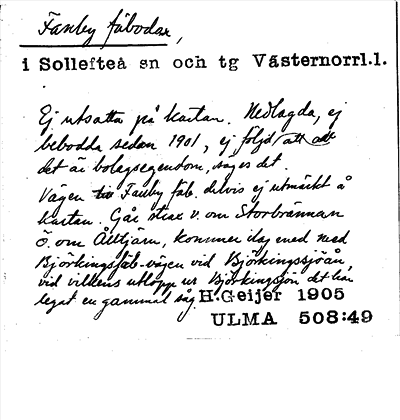 Fanby fäbodar,
i Sollefteå sn och tg Västernorrl.l.
Ej utsatta på kartan. Nedlagda, ej
bebodda sedan 1901, ej följd att
det är bolagsegendom, säges det.
Vägen till Fanby fäb. delvis ej utmärkt å
kartan. Går strax v. om Storbrännan
ö. om Ålltjärn, kommer ihop med med
Björkingsfäb-vägen vid Björkingssjöån,
vid vilkens utlopp ur Björkingssjön det har
legat en gammal såg.
H.Geijer 1905
ULMA 508:49